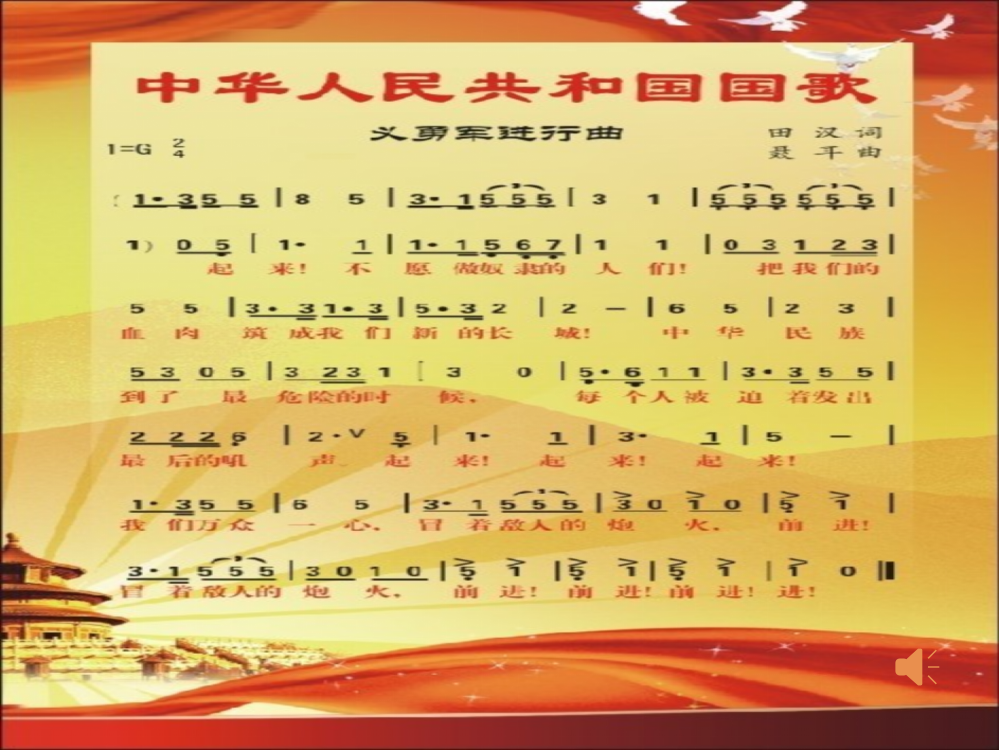 中华人民共和国国歌
义勇军进行曲
田 汉 词
1=G 2/4
聂 耳 曲
( 1· 3 5 5 | 8 5 | 3· 1 5 5 5 | 3 1 | 5 5 5 5 5 5 |
1) 0 5 | 1· 1 | 1· 1 5 6 7 | 1 1 | 0 3 1 2 3 |
起 来! 不 愿 做奴 隶的 人 们! 把 我 们的
5 5 | 3· 3 1· 3 | 5· 3 2 | 2 — | 6 5 | 2 3 |
血 肉 筑 成我 们 新 的长 城! 中 华 民 族
5 3 0 5 | 3 2 3 1 | 3 0 | 5· 6 1 1 | 3· 3 5 5 |
到了 最 危险的时 候, 每 个人被 迫 着发出
2 2 2 6 | 2· V 5 | 1· 1 | 3· 1 | 5 — |
最 后的吼 声。 起 来! 起 来! 起 来!
1· 3 5 5 | 6 5 | 3· 1 5 5 5 | 3 0 1 0 | 5 1 |
我 们万众 一 心, 冒 着敌人的 炮 火, 前 进!
3· 1 5 5 5 | 3 0 1 0 | 5 1 | 5 1 | 5 1 | 1 0 ‖
冒 着敌人的 炮 火, 前 进! 前 进! 前 进! 进!